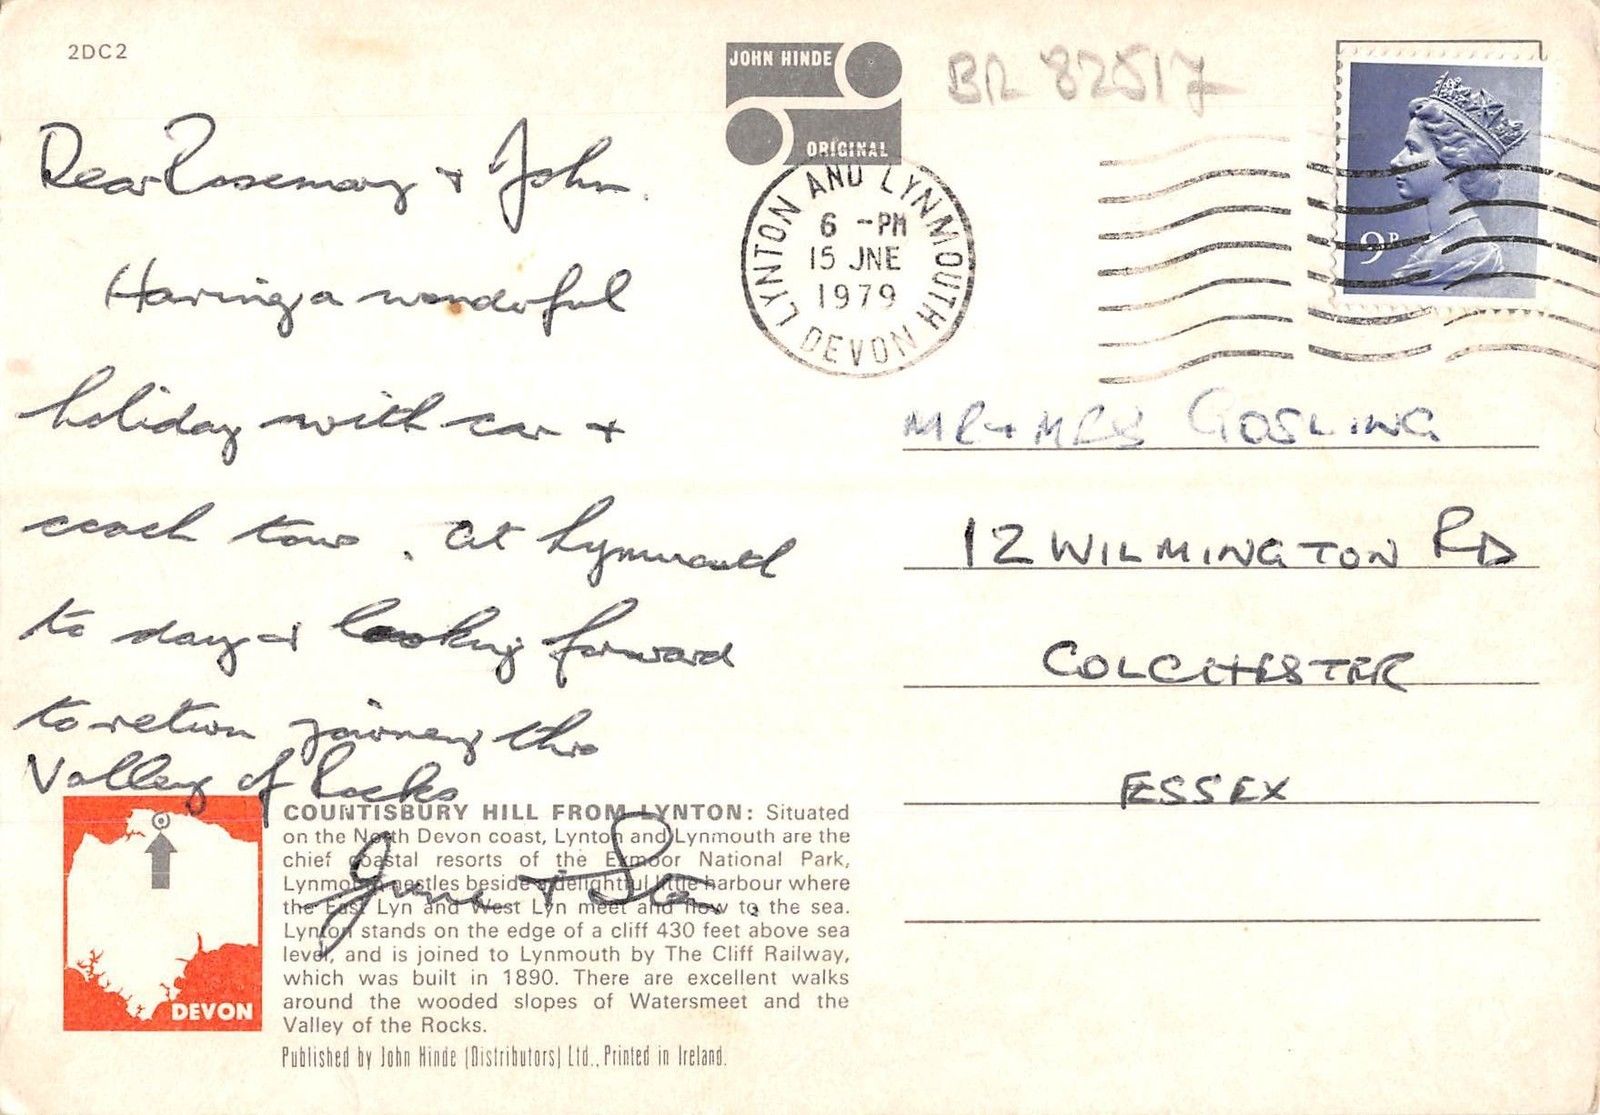 2DC2
JOHN HINDE
ORIGINAL
BR 82517
LYNTON AND LYNMOUTH
6 -PM
15 JNE
1979
DEVON
9P
Dear Rosemary + John.
Having a wonderful
holiday with car +
coach tours. At Lynmouth
to day + looking forward
to return journey thro
Valley of Rocks
June + Stan.
MR + MRS GOSLING
12 WILMINGTON RD
COLCHESTER
ESSEX
DEVON
COUNTISBURY HILL FROM LYNTON: Situated
on the North Devon coast, Lynton and Lynmouth are the
chief coastal resorts of the Exmoor National Park,
Lynmouth nestles beside a delightful little harbour where
the East Lyn and West Lyn meet and flow to the sea.
Lynton stands on the edge of a cliff 430 feet above sea
level, and is joined to Lynmouth by The Cliff Railway,
which was built in 1890. There are excellent walks
around the wooded slopes of Watersmeet and the
Valley of the Rocks.
Published by John Hinde (Distributors) Ltd., Printed in Ireland.